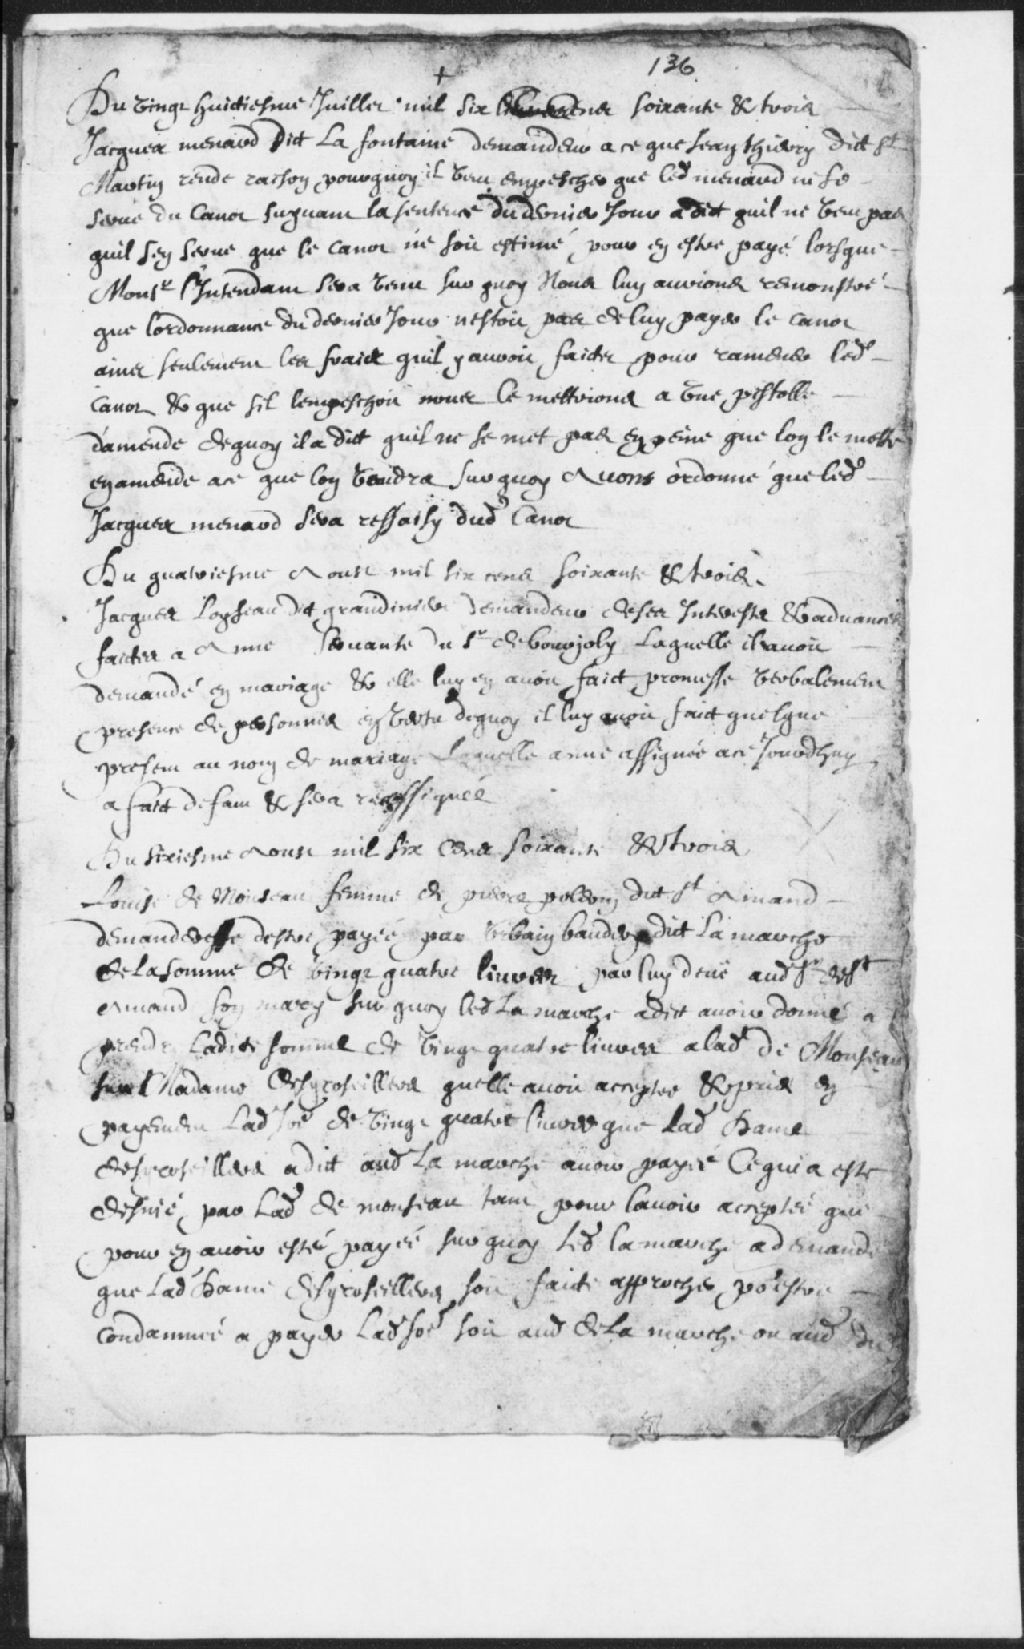 136
+
Du vingt huictiesme Juillet mil six cens soixante & trois
Jacques menard dit La fontaine demandeur a ce que Jean thierry dict St
Martin rende raison pourquoy il veut empescher que led menard ne se
serve du Canot suyvant la sentence du dernier Jour a dict quil ne veut pas
quil sen serve que le canot ne soit estimé pour en estre payé lorsque
Monsr l'Intendant sera venu sur quoy Nous luy aurions remonstré
que lordonnance du dernier Jour nestoit pas de luy payer le canot
ains seulement les fraicts quil y avoit faictes pour ramener led
Canot & que sil lempeschoit nous le mettrions a Une pistolle
d'amende dequoy il a dict quil ne se met pas en peine que lon le mette
en amende a ce que lon voudra sur quoy Avons ordonné que led
Jacques menard sera ressaisy dud Canot
Du quatriesme Aoust mil six cens soixante & trois
Jacques Loyseau dit grandinier demandeur de ses Interests & advances
faictes a Anne servante du Sr de boujoly Laquelle il avoit
demandé en mariage & elle luy en avoit faict promesse verbalement
presence de personnes en vertu dequoy il luy avoit faict quelque
present au nom de mariage Laquelle anne assignée a ce Jourdhuy
a faict defaut & sera reassignée
Du sixiesme Aoust mil six Cens soixante & trois
Louise de Monseau femme de pierre dict St Amand
demanderesse destre payée par Urbain baudry dict La marche
de La somme de vingt quatre livres par luy deüe aud Sr de St
Amand son mary sur quoy led La marche a dict avoir donné a
prendre Ladite somme de vingt quatre livres a lad de Monseau
sur Madame desgroseillers quelle avoit acceptée & prise en
payement Lad soe de vingt quatre livres que lad Dame
desgroseillers a dict aud La marche avoir payée Ce qui a esté
desnié par Lad de monseau tant pour lavoir acceptée que
pour en avoir esté payée sur quoy led la marche a demandé
que Lad Dame desgroseillers soit faicte approcher po estre
Condamnée a payer Lad soe soit aud de La marche ou aud Sr